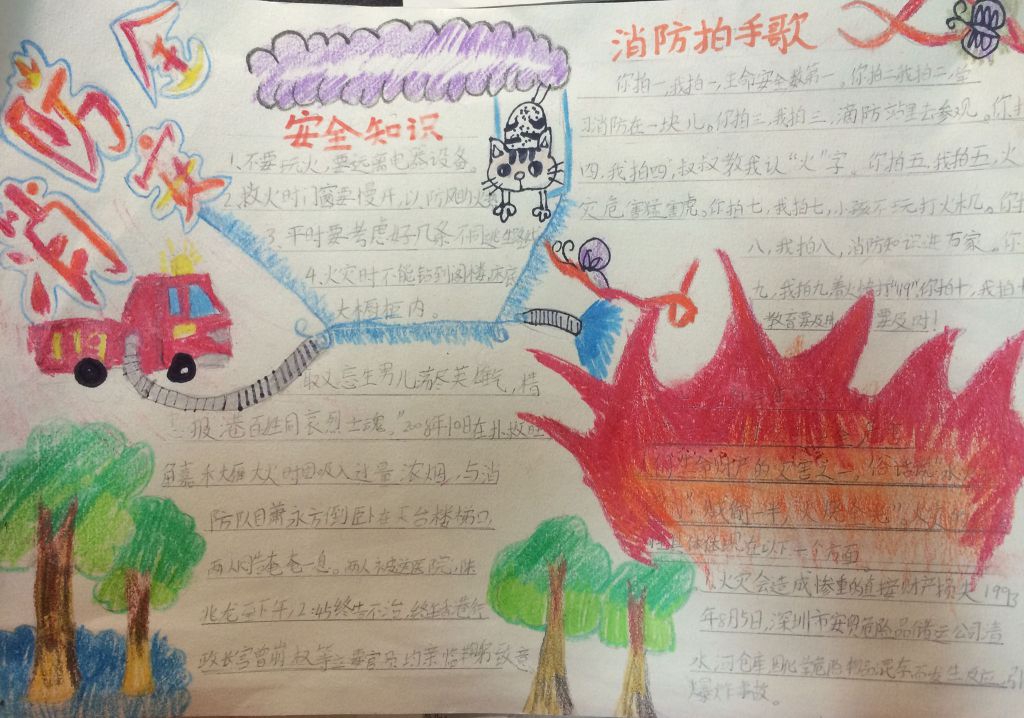 消防安全
安全知识
1.不要玩火,要远离电器设备。
2.救火时门窗要慢开,以防风火
3.平时要考虑好几条不同逃生路线
4.火灾时不能钻到阁楼床底
大橱柜内。
119
取义忘生男儿满尽英雄气,惜
报港百姓同哀烈士魂,"2008年10日在扑救旺
角嘉禾大厦大火时因吸入过量浓烟,与消
防队目萧永方倒卧在天台楼梯口,
两人奄奄一息。两人被送医院,陈
兆龙至下午12:45终告不治,
政长官曾荫权等主要官员均亲临致意
消防拍手歌
你拍一,我拍一,生命安全数第一。你拍二我拍二,学
习消防在一块儿。你拍三,我拍三,消防站里去参观。你拍
四,我拍四,叔叔教我认“火”字。你拍五,我拍五,火
灾危害猛害虎。你拍七,我拍七,小孩不玩打火机。你拍
八,我拍八,消防知识进万家。你
九,我拍九,着火情打“119”,你拍十,我拍十
教育要及时 要及时!
财产的灾害之一。俗话说,水
火灾的
体体现在以下一个方面
1.火灾会造成惨重的直接财产损失,1993
年8月5日,深圳市安贸危险品储运公司清
水河仓库因化学危险物品混存而发生反应,引
爆炸事故。